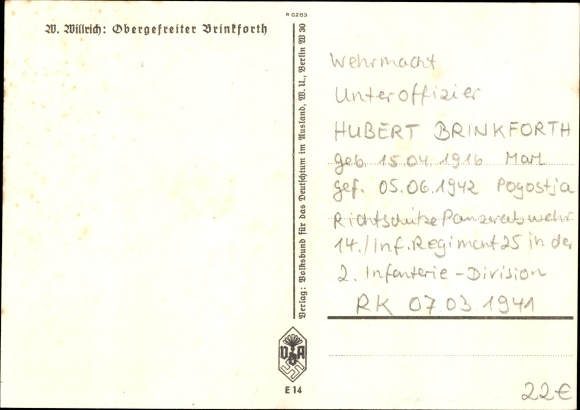 R 0253
W. Willrich: Obergefreiter Brinkforth
Verlag: Volksbund für das Deutschtum im Ausland, W. U., Berlin W 30
Wehrmacht
Unteroffizier
HUBERT BRINKFORTH
geb 15.04.1916 Marl
gef. 05.06.1942 Pogostja
Richtschütze Panzerabwehr
14./Inf.Regiment 25 in der
2. Infanterie-Division
RK 07 03 1941
VDA
E 14
22€